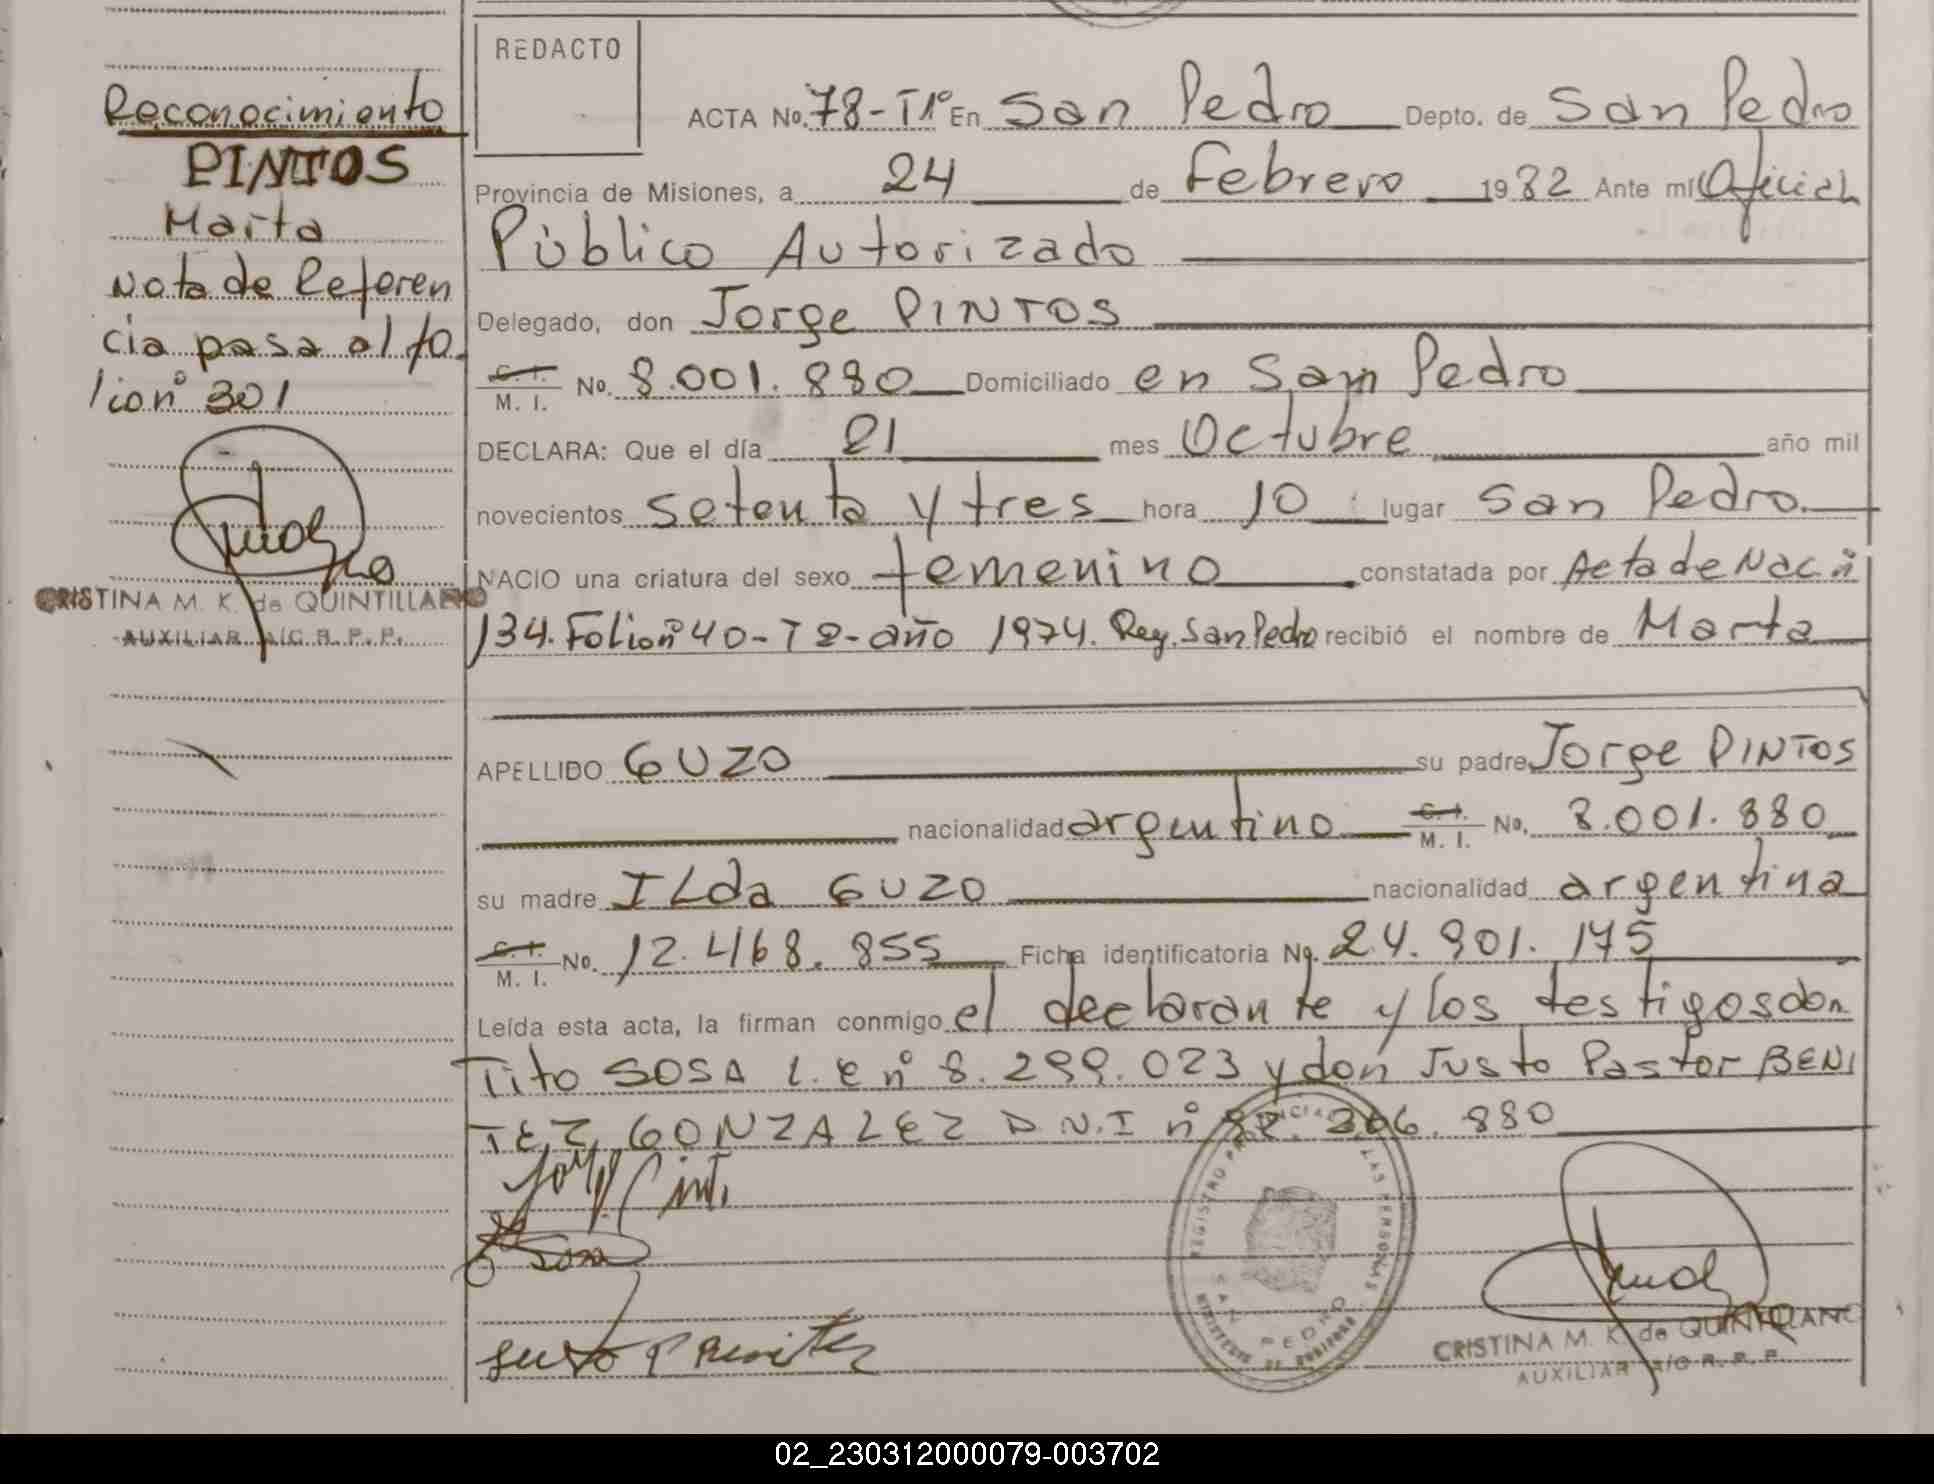 REDACTO
Reconocimiento
PINTOS
Marta
Nota de Referen
cia pasa al fo
lion° 301
CRISTINA M. K. de QUINTILLANO
AUXILIAR A/C R. P. P.
ACTA No. 78-T1° En San Pedro Depto. de San Pedro
Provincia de Misiones, a 24 de Febrero 1982 Ante mí Oficial
Público Autorizado
Delegado, don Jorge PINTOS
C. I.
M. I. No. 8.001.880 Domiciliado en San Pedro
DECLARA: Que el día 21 mes Octubre año mil
novecientos setenta y tres hora 10 lugar San Pedro.
NACIO una criatura del sexo femenino constatada por Acta de Nac n
134. Folion° 40-T2-año 1974. Reg. San Pedro recibió el nombre de Marta
APELLIDO GUZO su padre Jorge PINTOS
nacionalidad argentino C. I.
M. I. No. 8.001.880
su madre ILda GUZO nacionalidad argentina
C. I.
M. I. No. 12.468.855 Ficha identificatoria No. 24.901.175
Leída esta acta, la firman conmigo el declarante y los testigos don
Tito SOSA L.E n° 8.299.023 y don Justo Pastor BENI
TEZ GONZALEZ D.N.I n° 880
Sosa
Justo P Benitez
REGISTRO PROVINCIAL DE LAS PERSONAS
SAN PEDRO
MINISTERIO DE GOBIERNO
CRISTINA M. K. de QUINTILLANO
AUXILIAR A/C R. P. P.
02_230312000079-003702